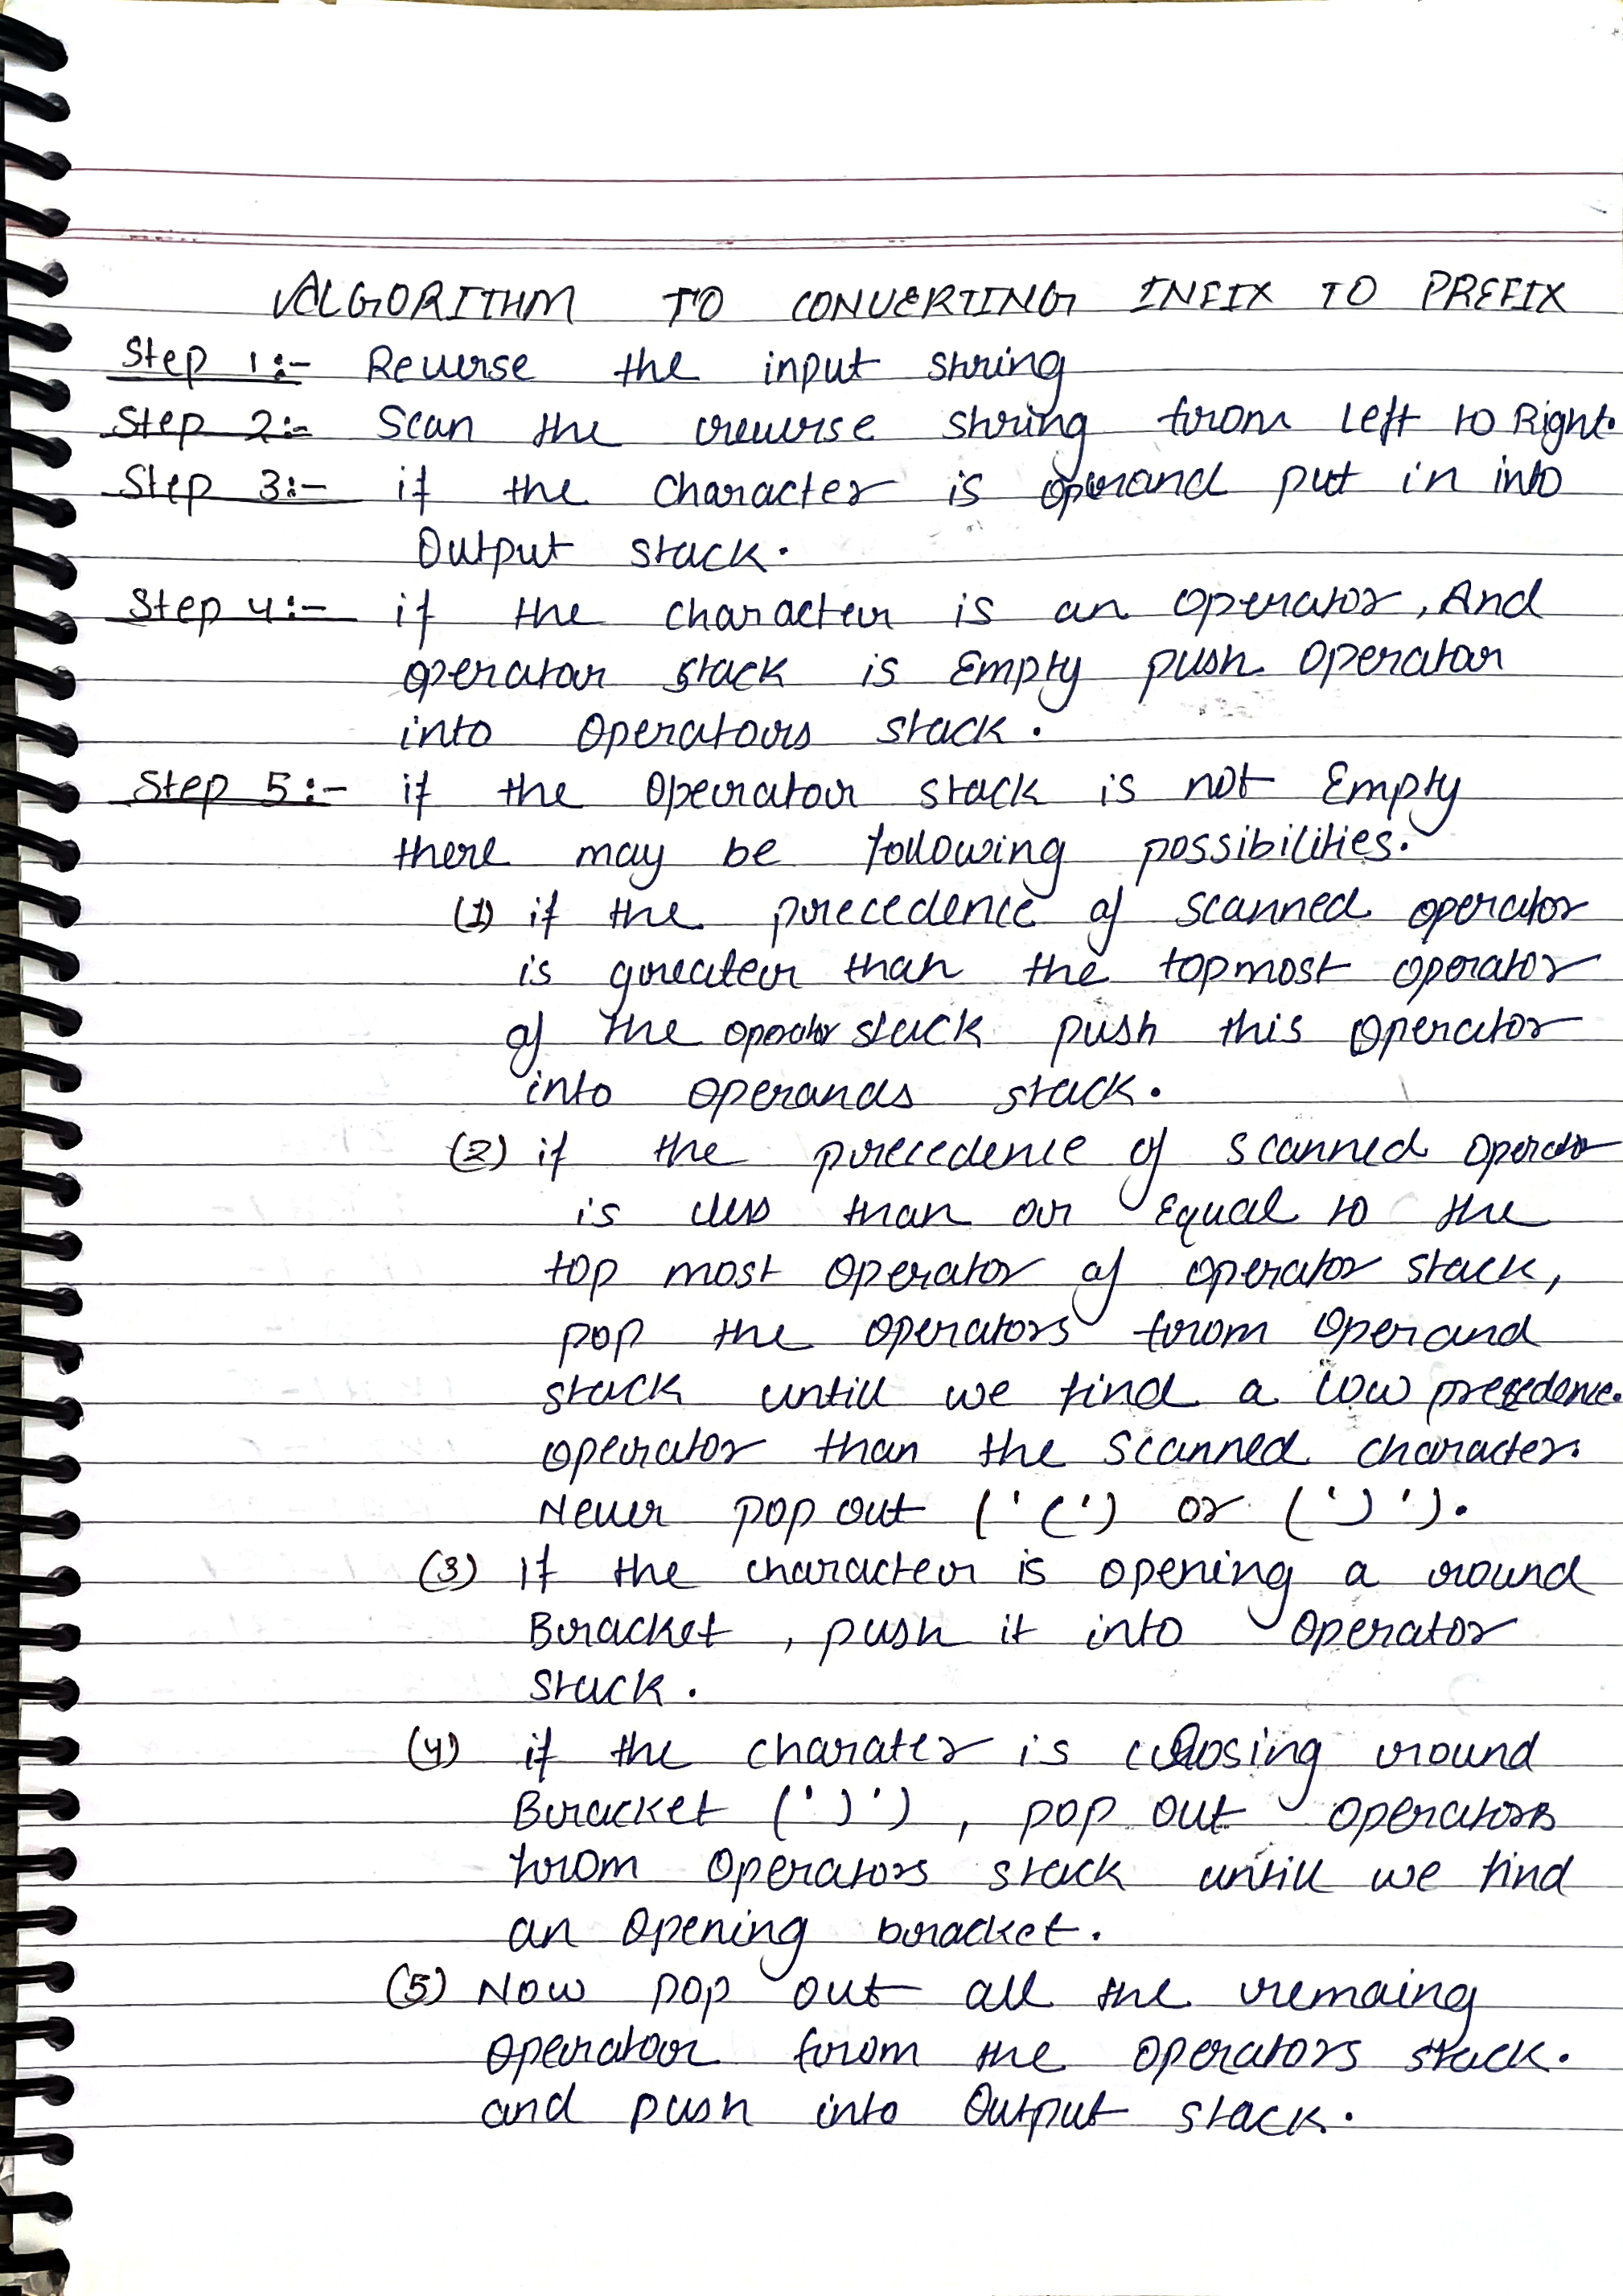 ALGORITHM TO CONVERTING INFIX TO PREFIX
Step 1:- Reverse the input string
Step 2:- Scan the reverse string from Left to Right.
Step 3:- if the character is operand put in into
Output stack.
Step 4:- if the character is an operator, And
operator stack is Empty push operator
into operators stack.
Step 5:- if the Operator stack is not Empty
there may be following possibilities.
(1) if the precedence of scanned operator
is greater than the topmost operator
of the operator stack push this operator
into operands stack.
(2) if the precedence of scanned operator
is less than or Equal to the
top most operator of operator stack,
pop the operators from operand
stack untill we find a low precedence.
operator than the scanned character.
Never pop out ('(') or (')').
(3) If the character is opening a round
Bracket, push it into operator
stack.
(4) if the charater is closing round
Bracket (')'), pop out operators
from operators stack untill we find
an opening bracket.
(5) Now pop out all the remaing
operator from the operators stack.
and push into Output stack.